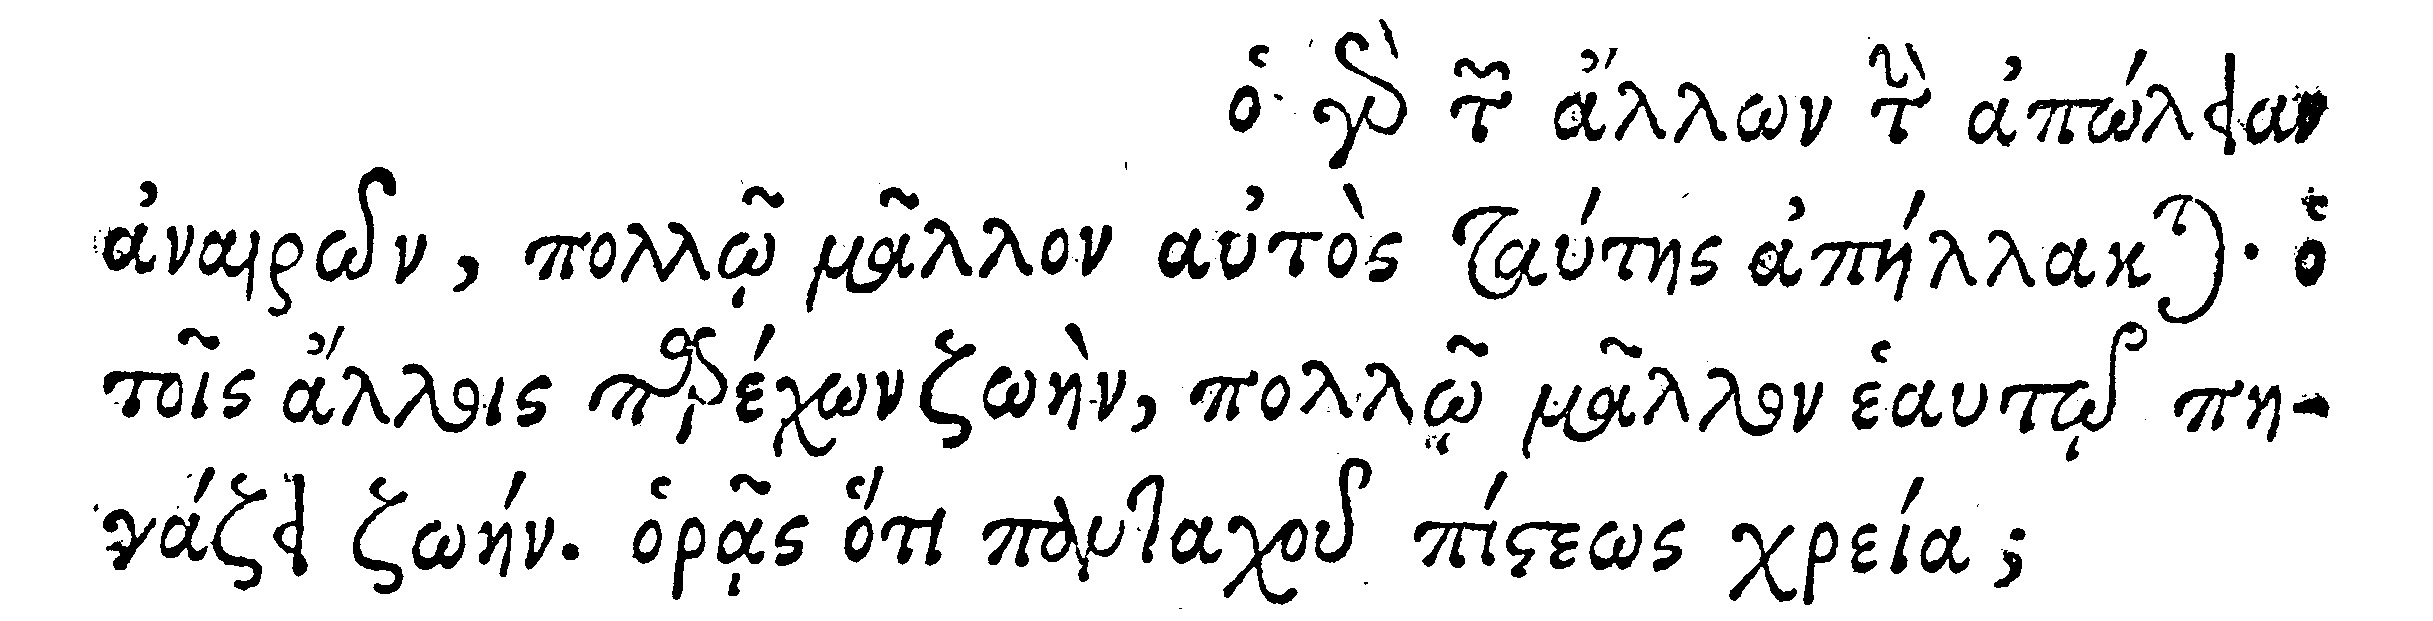 ὁ γὰρ τῶν ἄλλων τὴν ἀπώλειαν
ἀναιρῶν, πολλῷ μᾶλλον αὐτὸς ταύτης ἀπήλλακται. ὁ
τοῖς ἄλλοις παρέχων ζωὴν, πολλῷ μᾶλλον ἑαυτῷ πη-
γάζει ζωήν. ὁρᾷς ὅτι πανταχοῦ πίστεως χρεία;